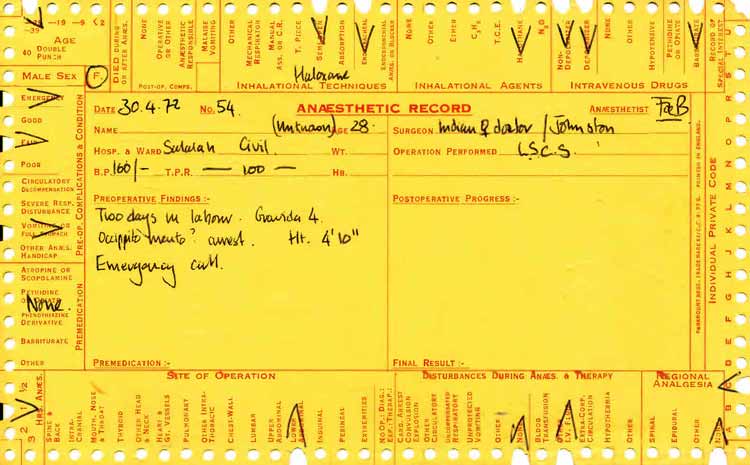 -39
-19
-9
<2
AGE
40 DOUBLE PUNCH
MALE SEX F.
DIED DURING OR AFTER ANÆS.
NONE
OPERATIVE OR OTHER
ANÆSTHETIC RESPONSIBLE
MALAISE VOMITING
OTHER
POST-OP. COMPS.
MECHANICAL RESPIRATOR
MANUAL ASS. OR C.R.
T. PIECE
ABSORPTION
ENDOTRACHEAL
ENDOBRONCHIAL ANÆS. OR BLOCKER
Haloxane
INHALATIONAL TECHNIQUES
NONE
OTHER
ETHER
C₃H₆
T.C.E.
HALOTHANE
N₂O
INHALATIONAL AGENTS
NONE
NON-DEPOLARISER
DEPOLARISER
OTHER
HYPOTENSIVE
PETHIDINE OR OPIATE
BARBITURATE
INTRAVENOUS DRUGS
RECORD OF SPECIAL INTEREST
EMERGENCY
GOOD
FAIR
POOR
CIRCULATORY DECOMPENSATION
SEVERE RESP. DISTURBANCE
VOMITING OR FULL STOMACH
OTHER ANÆS. HANDICAP
PRE-OP. COMPLICATIONS & CONDITION
ATROPINE OR SCOPOLAMINE
PETHIDINE OR OPIATE
None.
PHENOTHIAZINE DERIVATIVE
BARBITURATE
OTHER
PREMEDICATION
DATE 30.4.72 No. 54. ANÆSTHETIC RECORD ANÆSTHETIST F&B
NAME (Unknown) AGE 28. SURGEON Indian ♀ doctor / Johnston
HOSP. & WARD Salalah Civil WT. OPERATION PERFORMED L.S.C.S.
B.P. 160/- T.P.R. — 100 — HB.
PREOPERATIVE FINDINGS :- POSTOPERATIVE PROGRESS :-
Two days in labour. Gravida 4.
Occipito mento? arrest. Ht. 4'10"
Emergency call.
PREMEDICATION :- FINAL RESULT :-
PRINTED IN ENGLAND.
INDIVIDUAL PRIVATE CODE
A B C D E F G H J K L M N O P R S T U
3 2 1 ½
HRS. ANÆS.
SITE OF OPERATION
SPINE & BACK
INTRA-CRANIAL
MOUTH, NOSE & THROAT
THYROID
OTHER HEAD & NECK
HEART & GT. VESSELS
PULMONARY
OTHER INTRA-THORACIC
CHEST-WALL
LUMBAR
UPPER ABDOMINAL
INGUINAL
PERINEAL
EXTREMITIES
NO OP.: DIAG.: EXP.: THERAP.:
DISTURBANCES DURING ANÆS. & THERAPY
CARD. ARREST CONVULSION EXPLOSION
OTHER CIRCULATORY
UNCOMPENSATED RESPIRATORY
UNPROTECTED VOMITING
OTHER
NONE
BLOOD TRANSFUSION
I.V. FLUID
EXTRA-CORP. CIRCULATION
HYPOTHERMIA
OTHER
REGIONAL ANALGESIA
SPINAL
EPIDURAL
OTHER